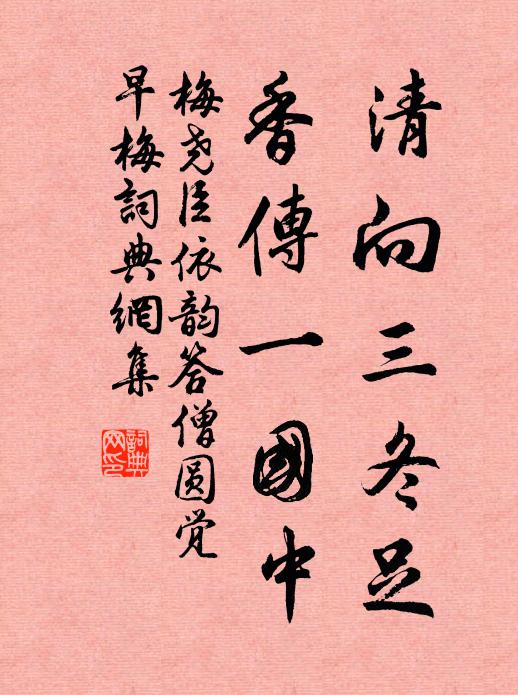 清向三冬足
香傳一國中
梅尧臣依韵答僧圆觉
早梅詞典網集
詞典網印